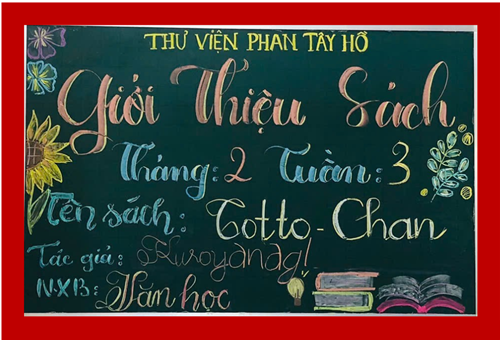 THƯ VIỆN PHAN TÂY HỒ
Giới Thiệu Sách
Tháng: 2 Tuần: 3
Tên sách: Totto-Chan
Tác giả: Kuroyanagi
N.X.B: Văn học